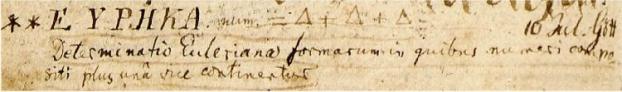 ** ΕΥΡΗΚΑ. num. = Δ + Δ + Δ. 10 Jul. Gött
Determinatio Euleriana formarum in quibus numeri compo
siti plus una vice continentur